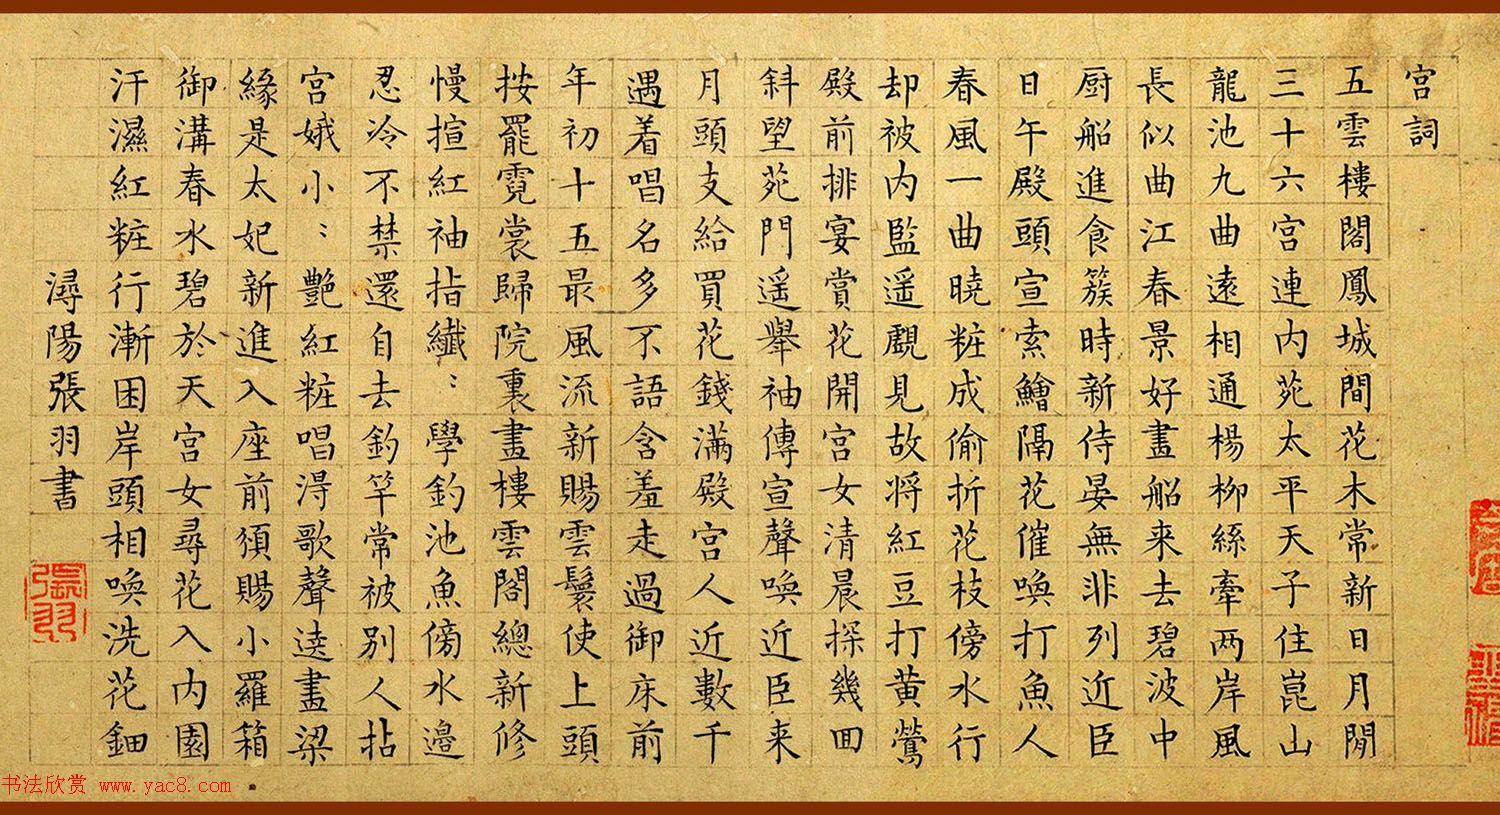 宮詞
五雲樓閣鳳城間花木常新日月閒
三十六宮連內苑太平天子住崑山
龍池九曲遠相通楊柳絲牽两岸風
長似曲江春景好畫船来去碧波中
厨船進食簇時新侍晏無非列近臣
日午殿頭宣索鱠隔花催喚打魚人
春風一曲曉粧成偷折花枝傍水行
却被內監遥覷見故将紅豆打黄鶯
殿前排宴賞花開宮女清晨探幾囬
斜望苑門遥舉袖傳宣聲喚近臣来
月頭支給買花錢滿殿宮人近數千
遇着唱名多不語含羞走過御床前
年初十五最風流新賜雲鬟使上頭
按罷霓裳歸院裏畫樓雲閣總新修
慢揎紅袖指纖〻學釣池魚傍水邊
忍冷不禁還自去釣竿常被別人拈
宮娥小〻艷紅粧唱淂歌聲逺畫梁
緣是太妃新進入座前須賜小羅箱
御溝春水碧於天宮女尋花入內園
汗濕紅粧行漸困岸頭相喚洗花鈿
潯陽張羽書
張羽
书法欣赏 www.yac8.com